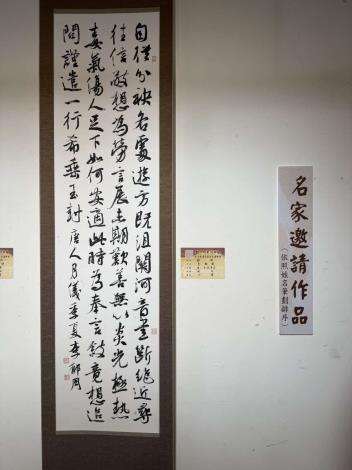 自從分袂各處遊方既沮關河音書斷絕近尋
往信敬想為勞言展未期歎善無以炎光極熱
毒氣傷人足下如何安適此時為奉言敘竟想追
問謹遣一行希垂玉封 唐人月儀季夏李郁周
名家邀請作品
(依照姓名筆劃排序)